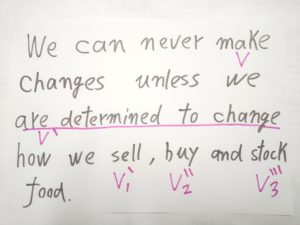 We can never make
V
changes unless we
are determined to change
V`
how we sell, buy and stock
V1` V2`` V3```
food.